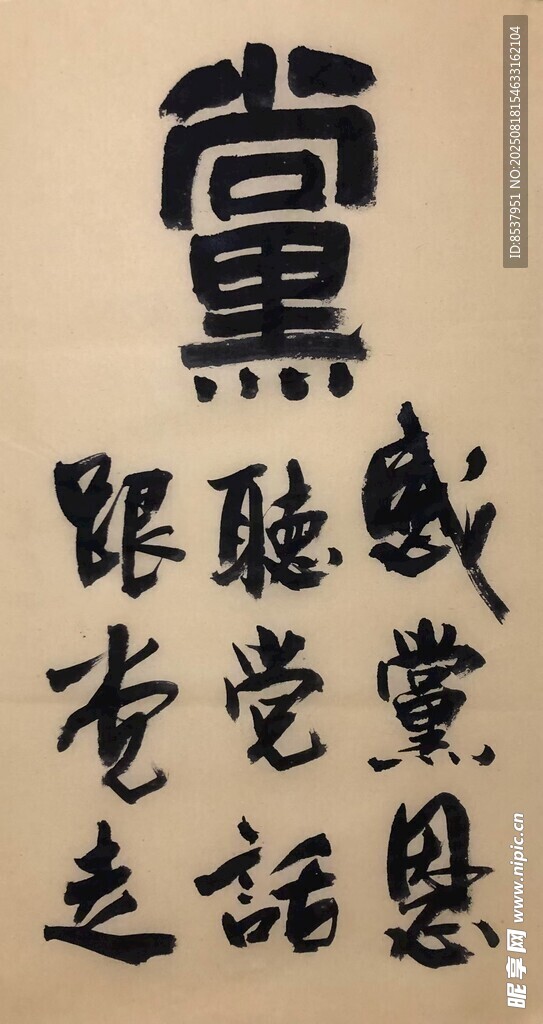 黨
感黨恩
聽党話
跟党走
ID:8537951 NO:20250818154633162104
昵享网 www.nipic.cn